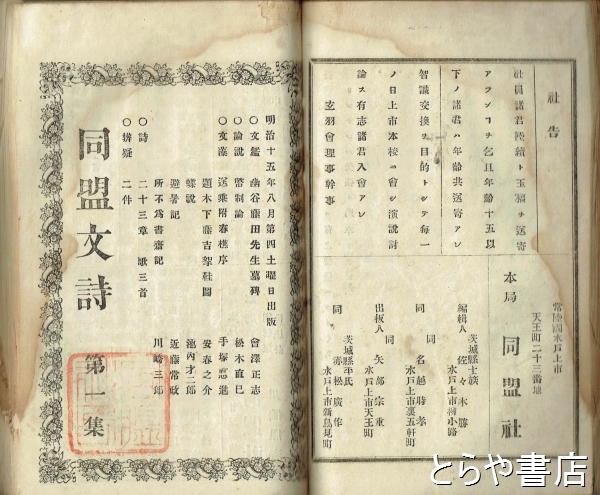 社告
社員諸君陸續ト玉稿ヲ送寄
アランコヲ乞且年齡十五以
下ノ諸君ハ年齡共送寄アレ
智識交換ヲ目的トシテ每一
ノ日上市本校ニ會シ演說討
論ス有志諸君入會アレ
玄羽會理事幹事
常陸國水戶上市
天王町二十三番地
本局 同盟社
茨城縣士族
編輯人 佐々木勝
水戶上市柳小路
同 名越時孝
水戶上市裏五軒町
出板人 矢部宗重
水戶上市天王町
茨城縣平民
同 赤松廣作
水戶上市新鳥見町
明治十五年八月第四土曜日出版
〇文鑑 幽谷藤田先生墓碑 會澤正志
〇論說 幣制論 松木直巳
〇文藻 送乘附春樵序 手塚
題木下藤古架牡圖 安春之介
蝶說 池內才二郎
避暑記 近藤常政
所不爲書齋記 川崎三郎
〇詩 二十三章 歌三首
〇辨疑 二件
同盟文詩 第一集
とらや書店